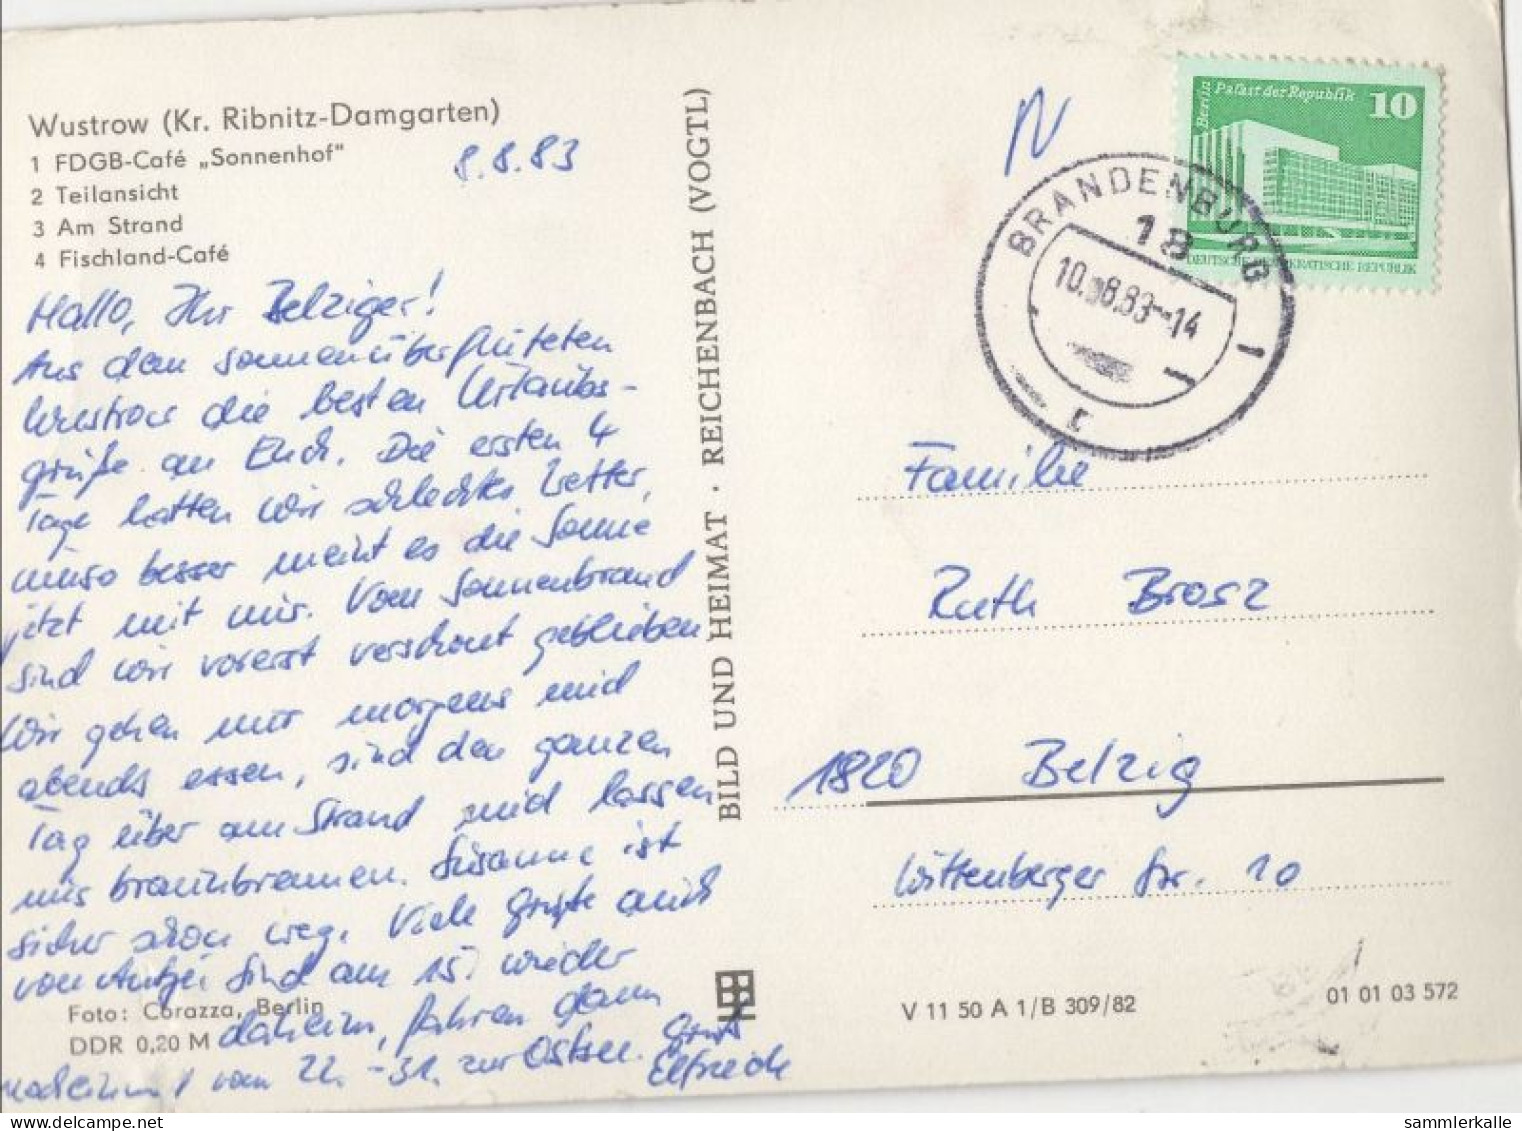 Wustrow (Kr. Ribnitz-Damgarten)
1 FDGB-Café „Sonnenhof"
2 Teilansicht
3 Am Strand
4 Fischland-Café
8.8.83
Hallo, Ihr Belziger!
Aus dem sonnenüberfluteten
Wustrow die besten Urlaubs-
grüße an Euch. Die ersten 4
Tage hatten wir schlechtes Wetter,
umso besser meint es die Sonne
jetzt mit mir. Vom Sonnenbrand
sind wir vorerst verschont geblieben
Wir gehen nur morgens und
abends essen, sind den ganzen
Tag über am Strand und lassen
uns braunbrennen. Susanne ist
sicher schon weg. Viele Grüße auch
von sind am 15. wieder
daheim, fahren dann
vom 22. - 31. zur Ostsee. Gruß
Elfriede
Foto: Corazza, Berlin
DDR 0,20 M
BILD UND HEIMAT · REICHENBACH (VOGTL)
N
Berlin
Palast der Republik
10
DEUTSCHE DEMOKRATISCHE REPUBLIK
BRANDENBURG 1
18
10.08.83-14
r
Familie
Ruth Brosz
1820 Belzig
Wittenberger Str. 10
V 11 50 A 1/B 309/82
01 01 03 572
sammlerkalle